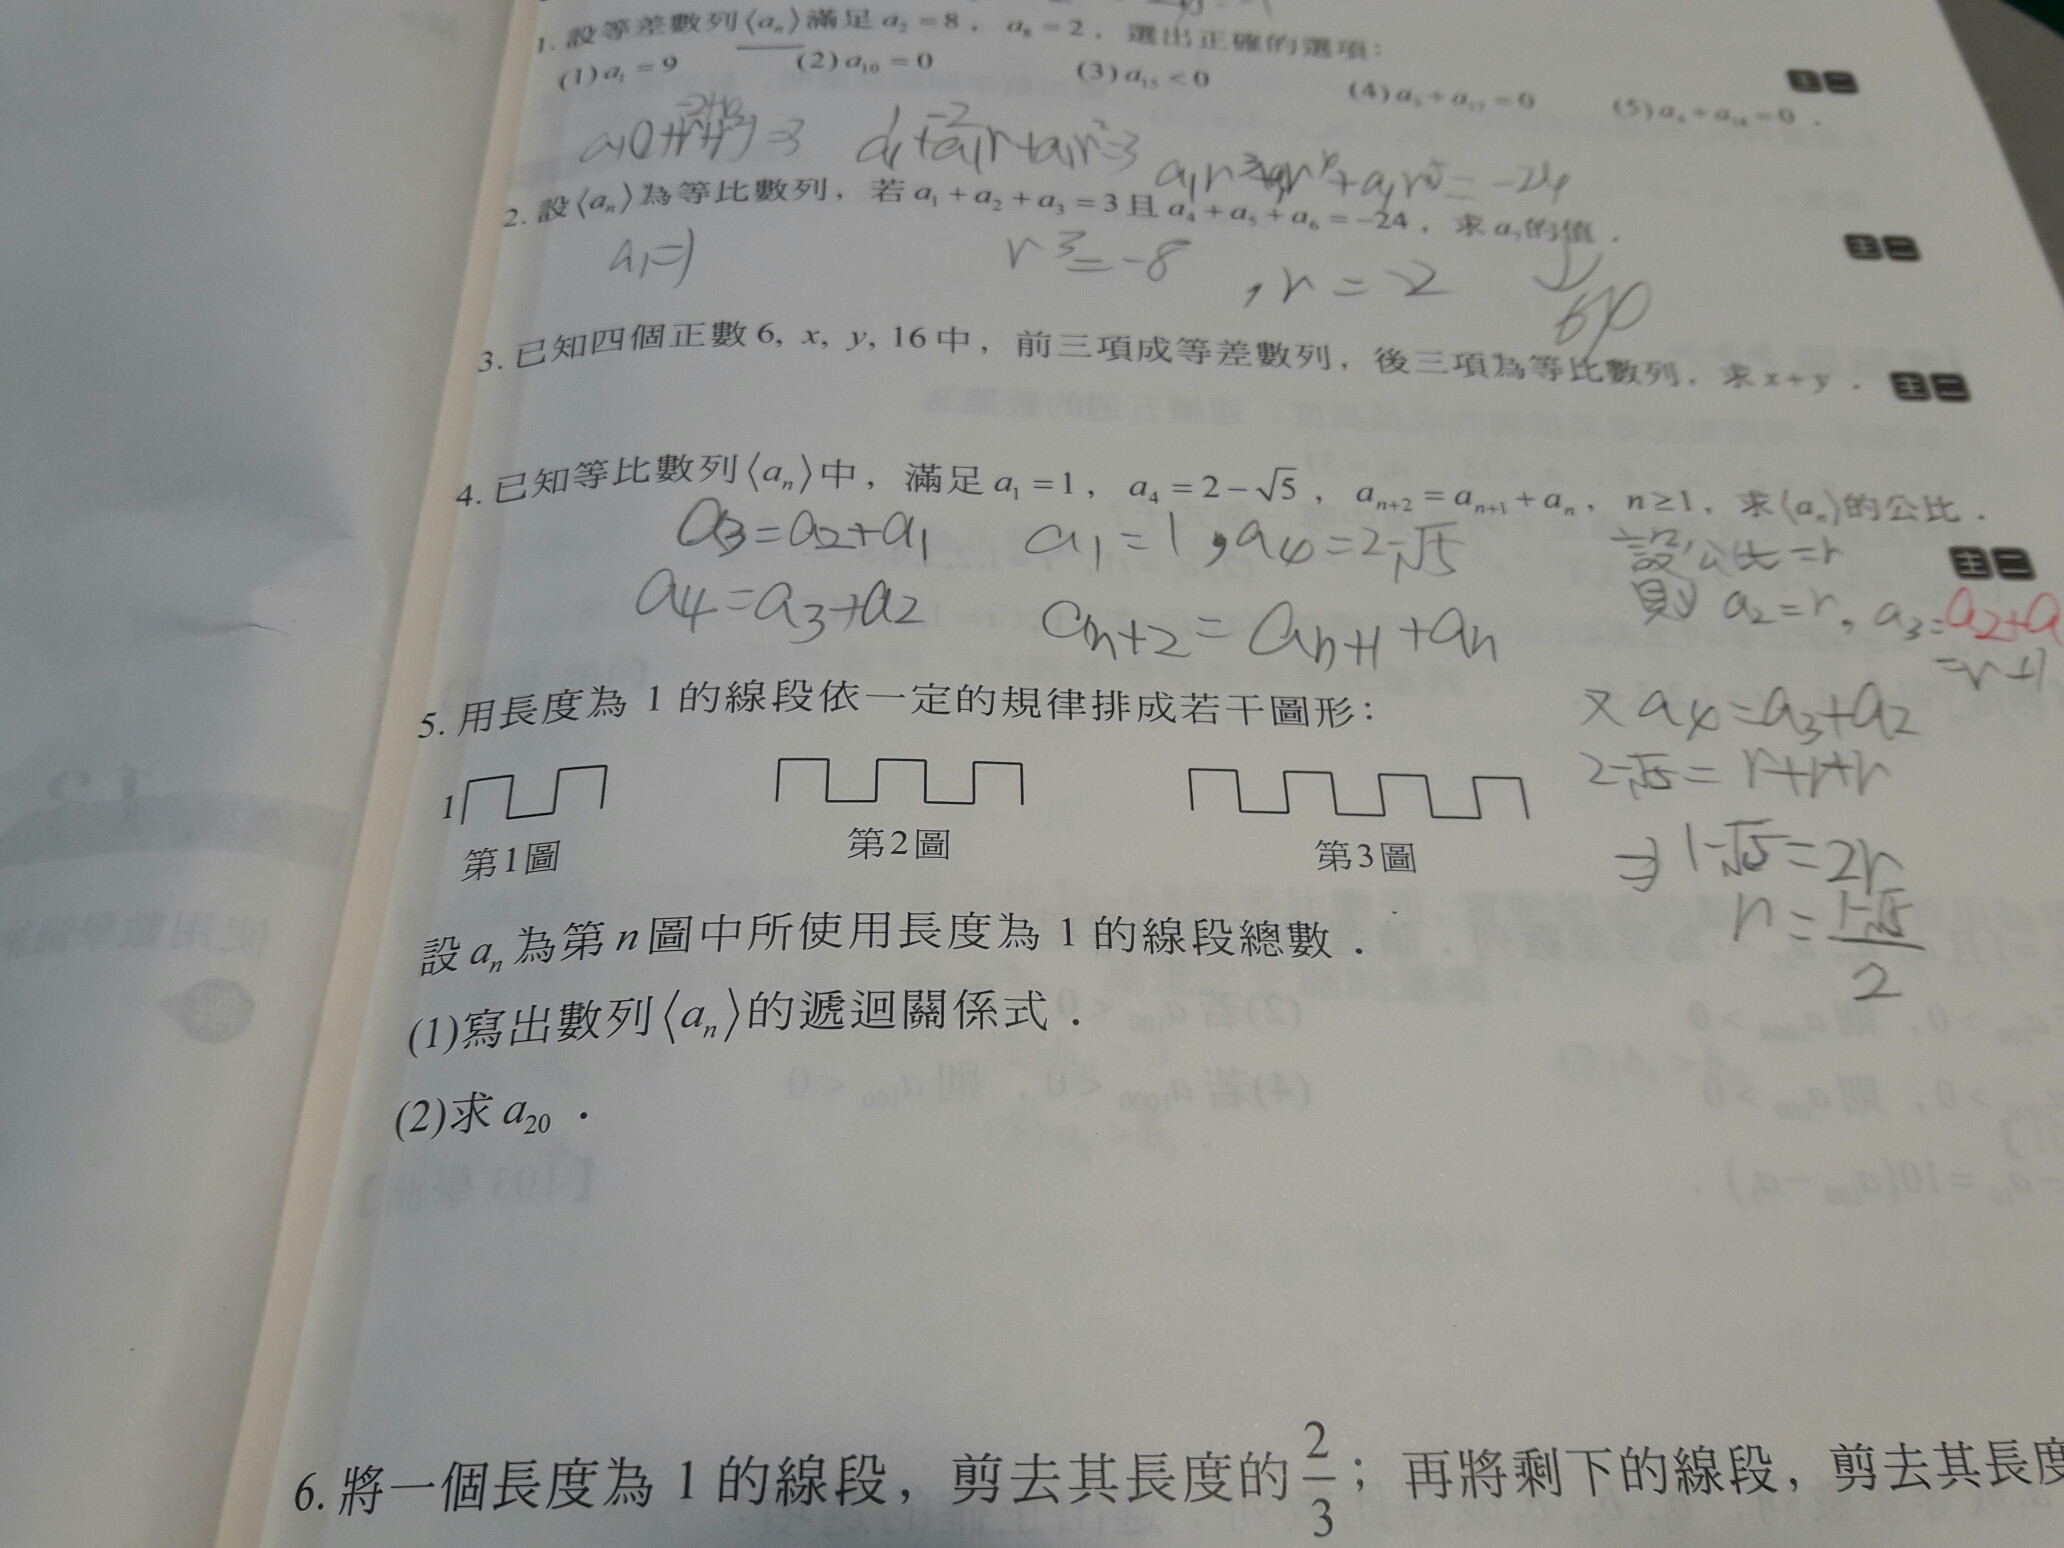 1. 設等差數列⟨aₙ⟩滿足 a₂ = 8, a₈ = 2, 選出正確的選項:
(1) a₁ = 9 (2) a₁₀ = 0 (3) a₁₅ < 0 (4) a₃ + a₁₇ = 0 (5) a₄ + a₁₆ = 0 .
主 二
a₁r³ + a₁r⁴ + a₁r⁵ = -24
2. 設⟨aₙ⟩為等比數列, 若 a₁ + a₂ + a₃ = 3 且 a₄ + a₅ + a₆ = -24, 求 a₇ 的值 .
主 二
a₁ = 1 r³ = -8 , r = -2
3. 已知四個正數 6, x, y, 16 中, 前三項成等差數列, 後三項為等比數列, 求 x + y .
主 二
4. 已知等比數列⟨aₙ⟩中, 滿足 a₁ = 1, a₄ = 2 - √5, aₙ₊₂ = aₙ₊₁ + aₙ, n ≥ 1, 求⟨aₙ⟩的公比 .
主 二
a₃ = a₂ + a₁ a₁ = 1 , a₄ = 2-√5
a₄ = a₃ + a₂ aₙ₊₂ = aₙ₊₁ + aₙ
設公比 = r
則 a₂ = r, a₃ = a₂ + a
= r + 1
又 a₄ = a₃ + a₂
2-√5 = r+1+r
⇒ 1-√5 = 2r
r = (1-√5)/2
5. 用長度為 1 的線段依一定的規律排成若干圖形:
1
第1圖 第2圖 第3圖
設 aₙ 為第 n 圖中所使用長度為 1 的線段總數 .
(1)寫出數列⟨aₙ⟩的遞迴關係式 .
(2)求 a₂₀ .
6. 將一個長度為 1 的線段, 剪去其長度的 2/3 ; 再將剩下的線段, 剪去其長度